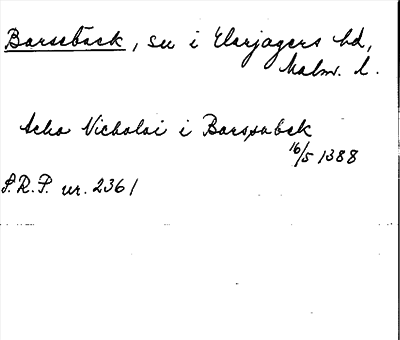 Barsebäck, sn i Harjagers hd,
Malm. l.
Acho Nicholai i Barsyabek
16/5 1388
S.R.P. nr. 2361